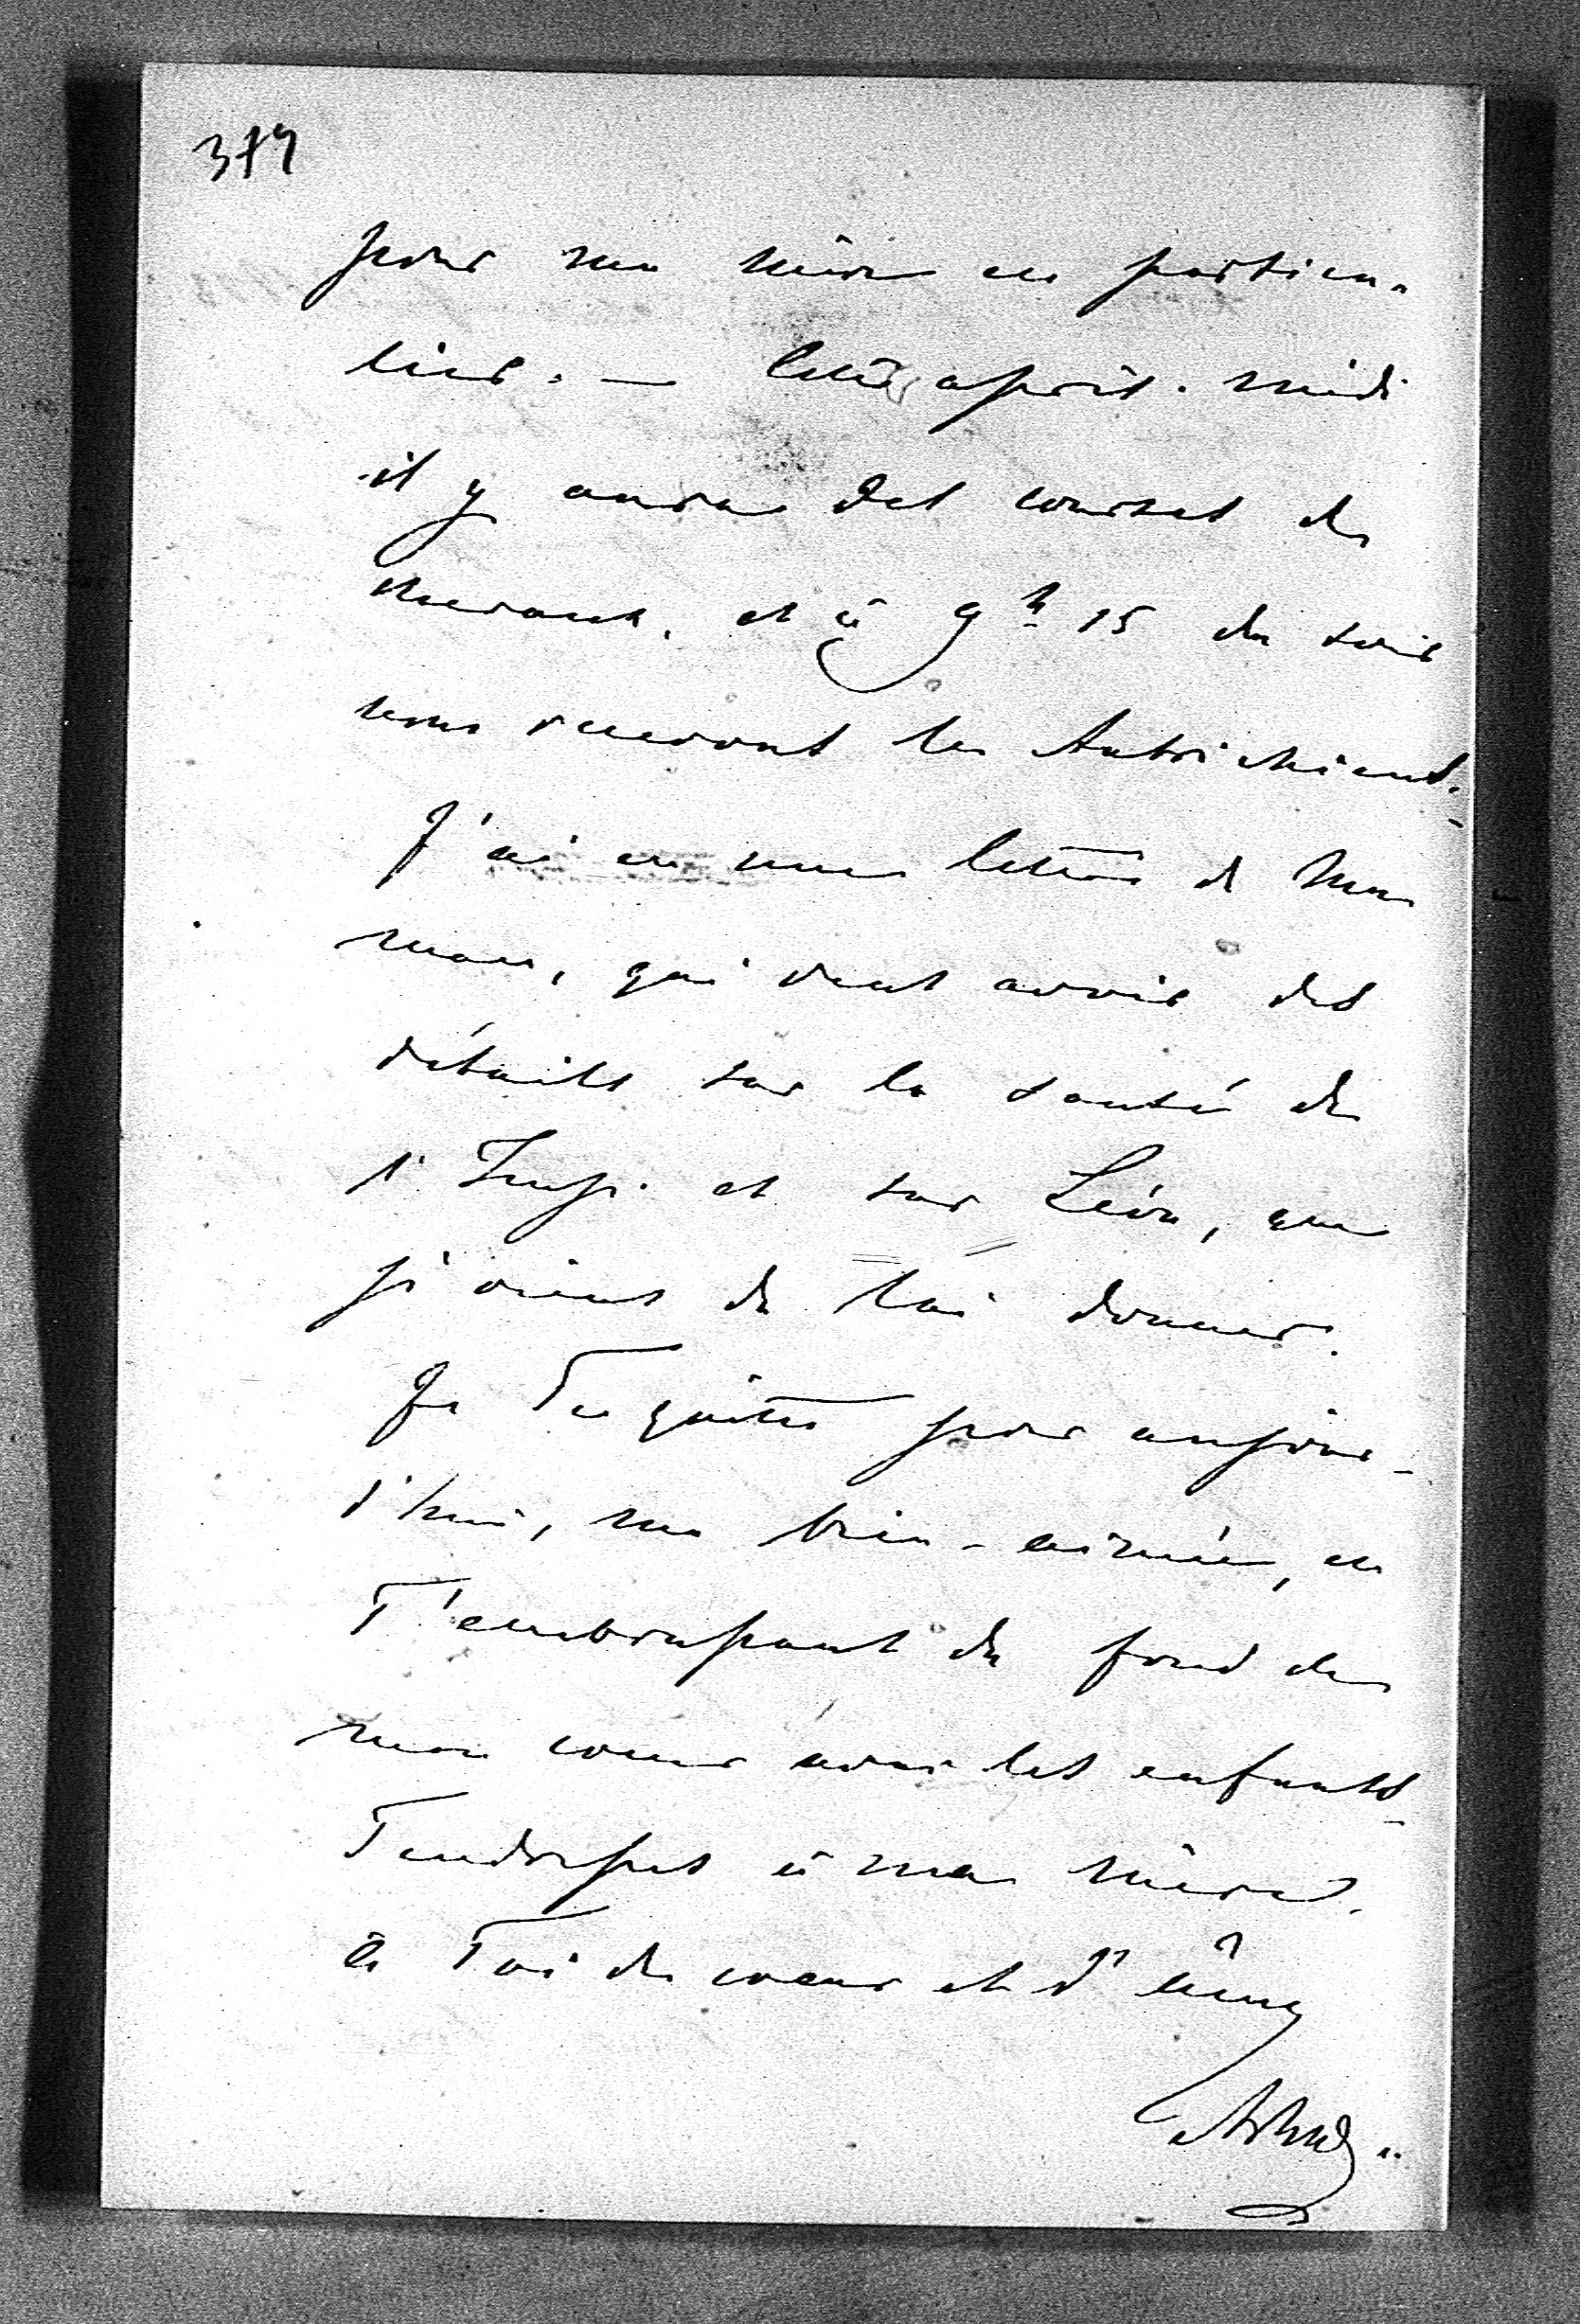 379
pour ma mère en particu-
lier. — Cette après-midi
il y aura des courses de
chevaux, et à 9 h 15 du soir
nous recevons les Autrichiens.
J'ai eu une lettre de Ma-
man, qui veut avoir des
détails sur la santé de
l'Imp. et sur Léon, que
je viens de lui donner.
Je Te quitte pour aujour-
d'hui, ma bien-aimée, en
T'embrassant du fond de
mon coeur avec les enfants.
Tendresses à ma mère.
à Toi de coeur et d'âme